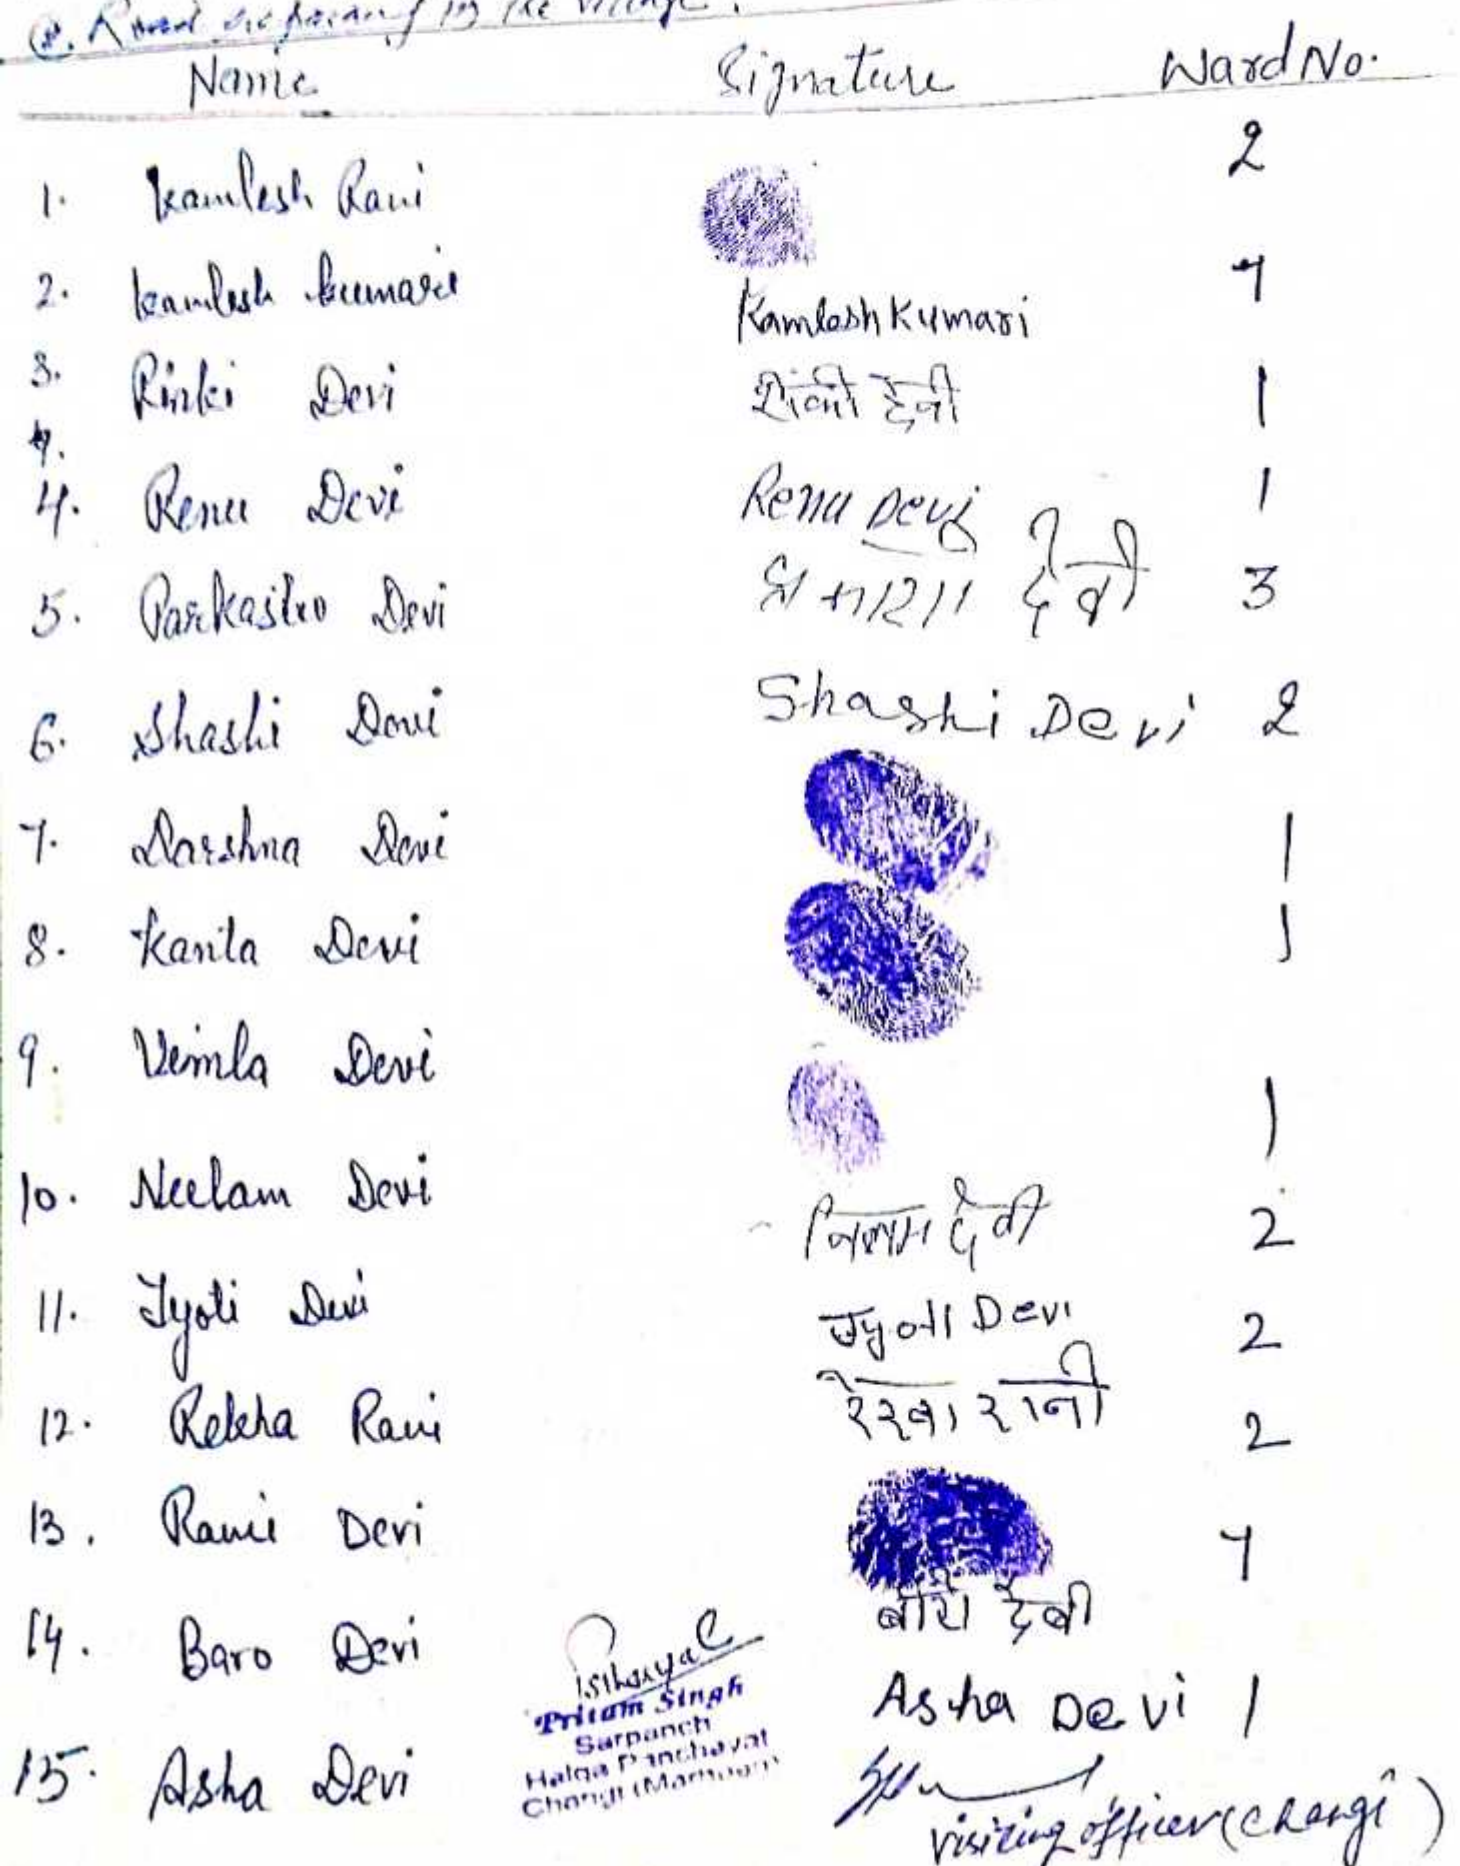 Road repairing in the village.
Name Signature Ward No.
1. Kamlesh Rani 2
2. Kamlesh Kumari Kamlesh Kumari 7
3. Rinki Devi रींकी देवी 1
4.
4. Renu Devi Renu Devi 1
5. Parkasho Devi देवी 3
6. Shashi Devi Shashi Devi 2
7. Darshna Devi 1
8. Kanta Devi 1
9. Vimla Devi 1
10. Neelam Devi निलम देवी 2
11. Jyoti Devi Jyoti Devi 2
12. Rekha Rani रेखा रानी 2
13. Rani Devi 7
14. Baro Devi बारो देवी
15. Asha Devi Asha Devi 1
Pritam Singh
Sarpanch
Halqa Panchayat
Changi
visiting officer (Changi)